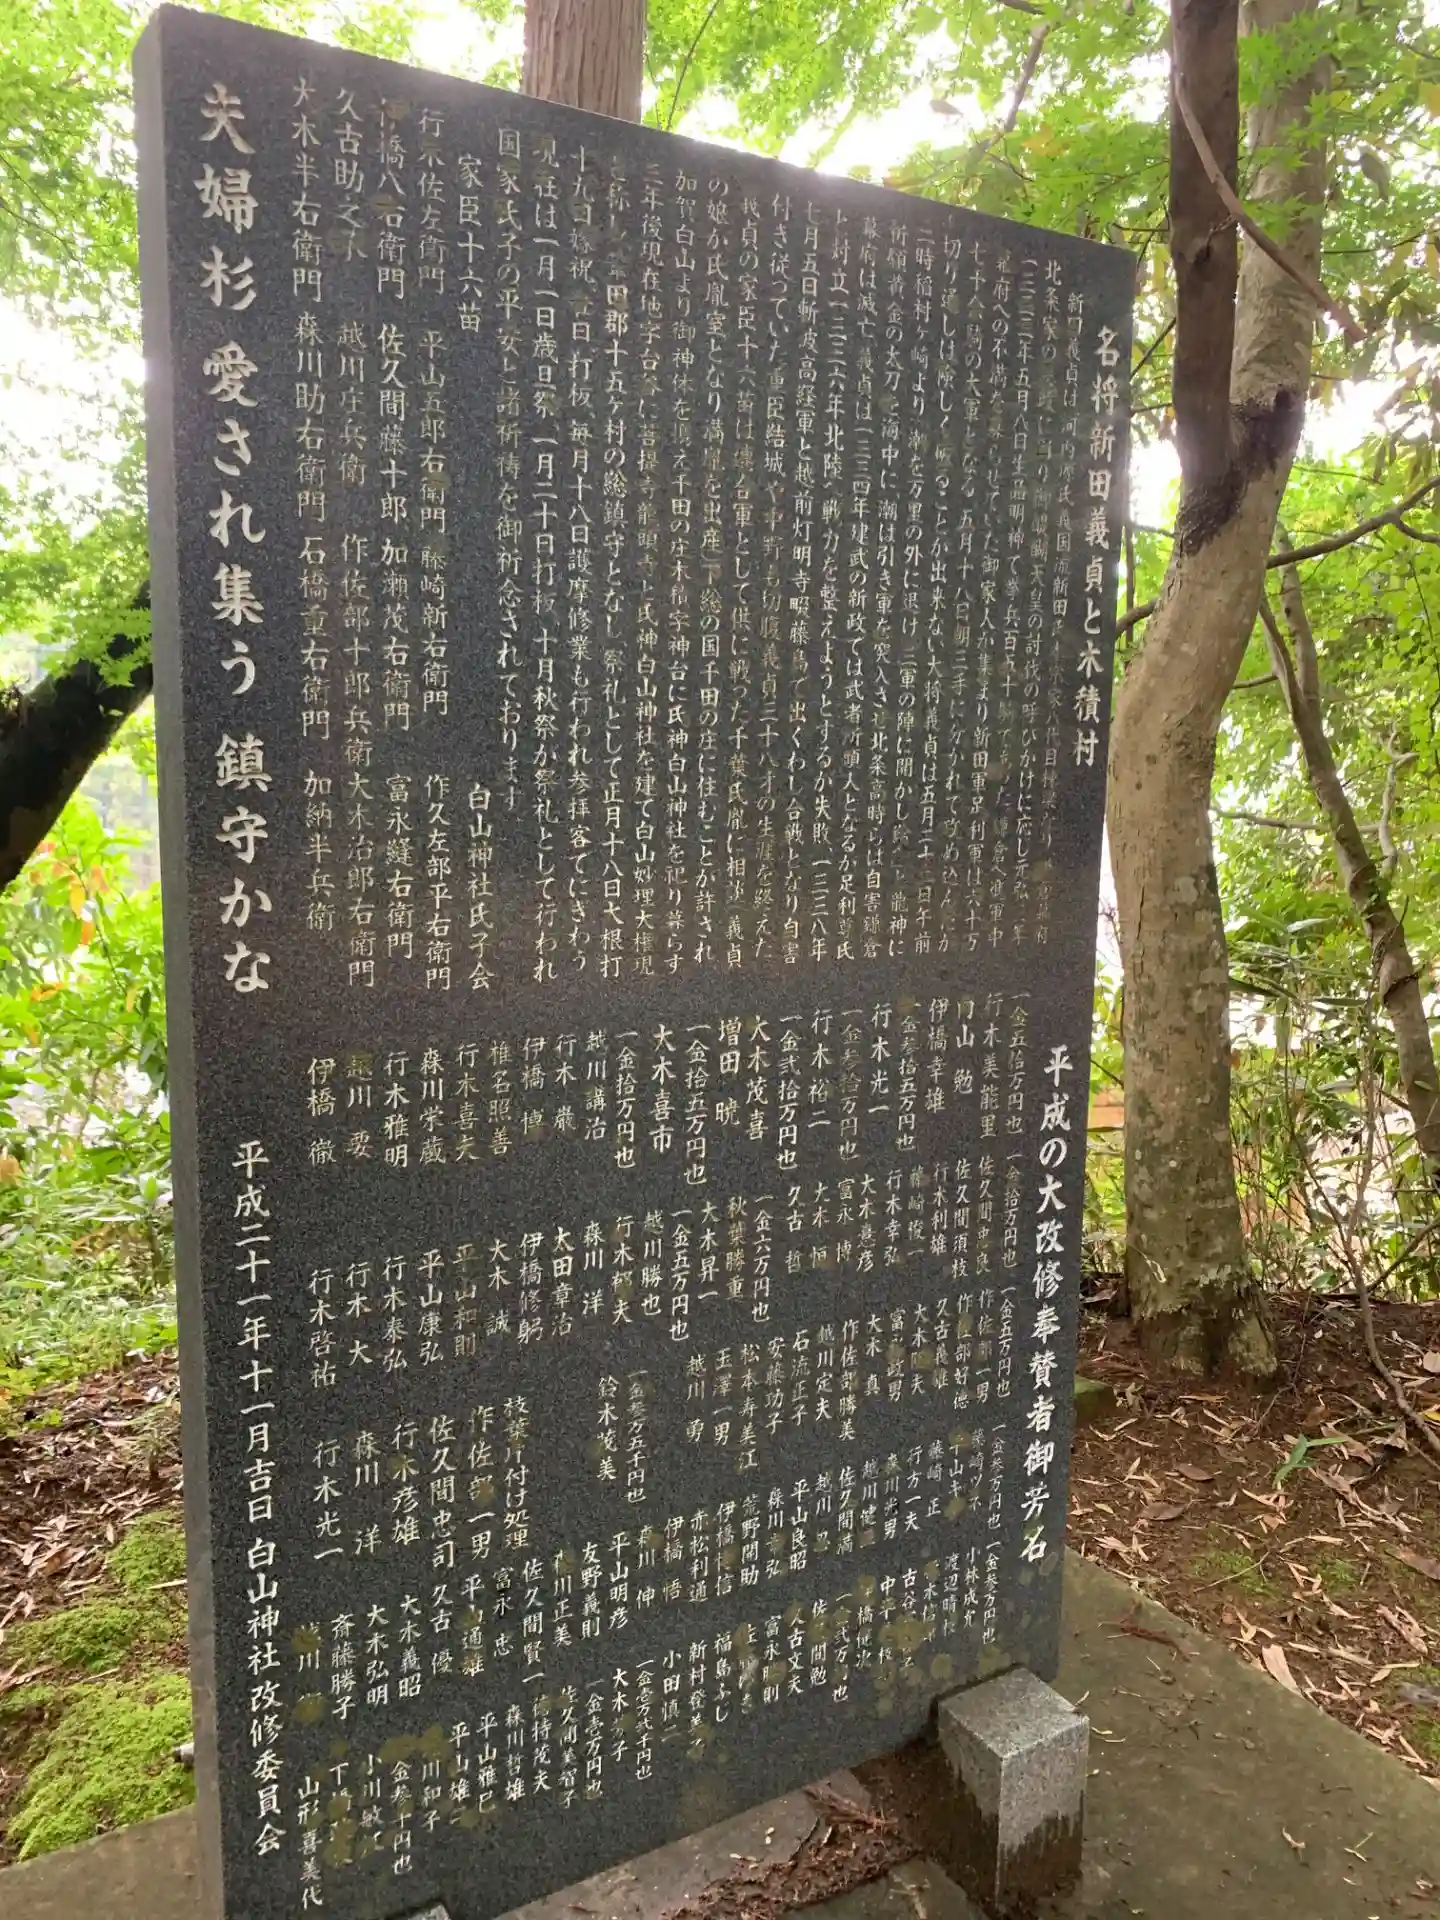 名将新田義貞と木積村
新田義貞は河内源氏義国流新田氏本宗家八代目棟梁
北条家の 御醍醐天皇の討伐の呼びかけに応じ元弘三年
(一三三三)年五月八日生品明神で挙兵百五十騎で 鎌倉へ進軍中
幕府への不満を募らせていた御家人が集まり新田軍足利軍は六十万
七千余騎の大軍となる 五月十八日朝三手に分かれて攻め込んだが
切り通しは険しく破ることが出来ない大将義貞は五月二十二日午前
二時稲村ヶ崎より 潮を万里の外に退け 三軍の陣に開かし除 と龍神に
祈願黄金の太刀を海中に、潮は引き軍を突入させ北条高時らは自害鎌倉
幕府は滅亡 義貞は(一三三四年建武の新政では武者所頭人となるが足利尊氏
と対立(一三三六年北陸へ戦力を整えようとするが失敗、(一三三八年
七月五日斯波高経軍と越前灯明寺畷藤島で出くわし合戦となり自害
付き従っていた重臣結城 も切腹義貞三十八才の生涯を終えた
義貞の家臣十六苗は連合軍として供に戦った千葉氏胤に相談 義貞
の娘が氏胤室となり満胤を出産 下総の国千田の庄に住むことが許され
加賀白山より御神体を携え千田の庄木積字神台に氏神白山神社を祀り暮らす
三年後現在地字台谷に菩提寺龍頭寺と氏神白山神社を建て白山妙理大権現
と称し 千田郡十五ヶ村の総鎮守となし 祭礼として正月十八日大根打
十九日嫁祝、廿日、打板、毎月十八日護摩修業も行われ参拝客てにぎわう
現在は一月一日歳旦祭、一月二十日打板、十月秋祭が祭礼として行われ
国家氏子の平安と諸祈祷を御祈念されております
家臣十六苗
白山神社氏子会
行木佐左衛門 平山五郎右衛門 藤崎新右衛門 作久左部平右衛門
伊橋八右衛門 佐久間藤十郎 加瀬茂右衛門 富永縫右衛門
久古助之丞 越川庄兵衛 作佐部十郎兵衛 大木治郎右衛門
大木半右衛門 森川助右衛門 石橋重右衛門 加納半兵衛
夫婦杉 愛され集う 鎮守かな
平成の大改修奉賛者御芳名
一金五拾万円也
行木美能里
山 勉
伊橋幸雄
一金参拾五万円也
行木光一
一金参拾万円也
行木裕二
一金弐拾万円也
大木茂喜
増田 暁
一金拾五万円也
大木喜市
一金拾万円也
越川講治
行木 巌
伊橋 博
椎名照善
行木喜夫
森川栄蔵
行木雅明
越川 要
伊橋 徹
一金拾万円也
佐久間忠良
佐久間須枝
行木利雄
藤崎俊一
行木幸弘
大木喜彦
富永 博
大木 恒
久古 哲
一金六万円也
秋葉勝重
大木昇一
一金五万円也
越川勝也
行木都夫
森川 洋
太田章治
伊橋修躬
大木 誠
平山和則
平山康弘
行木泰弘
行木 大
行木啓祐
一金五万円也
作佐部一男
作佐部好徳
久古義雄
大木 夫
富永政男
大木 真
作佐部勝美
越川定夫
石流正子
安藤功子
松本寿美江
玉澤一男
越川 勇
一金参万五千円也
鈴木茂美
枝葉片付け処理
作佐部一男
佐久間忠司
行木彦雄
森川 洋
行木光一
一金参万円也
藤崎ツネ
平山キ
藤崎 正
行方一夫
森川光男
越川健
佐久間満
越川
平山良昭
森川幸弘
荒野開助
伊橋 信
赤松利通
伊橋 悟
森川 伸
平山明彦
友野義則
越川正美
佐久間賢一
富永 忠
平山通雄
久古 優
大木義昭
大木弘明
斎藤勝子
一金参万円也
小林成允
渡辺晴枝
古谷
中平
橋健次
一金弐万円也
佐久間勉
久古文夫
富永勝則
福島ふし
新村登美子
小田慎二
一金壱万弐千円也
大木 子
一金壱万円也
佐久間美智子
持茂夫
森川哲雄
平山雅巳
平山雄二
川和子
金参千円也
小川敏江
山形喜美代
平成二十一年十一月吉日 白山神社改修委員会